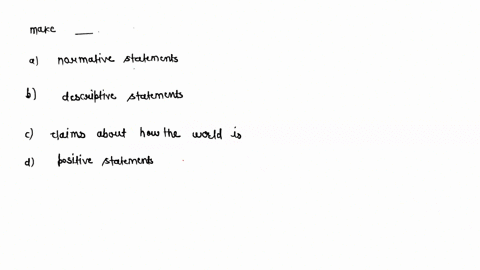 make ___.
a) normative statements
b) descriptive statements
c) claims about how the world is
d) positive statements